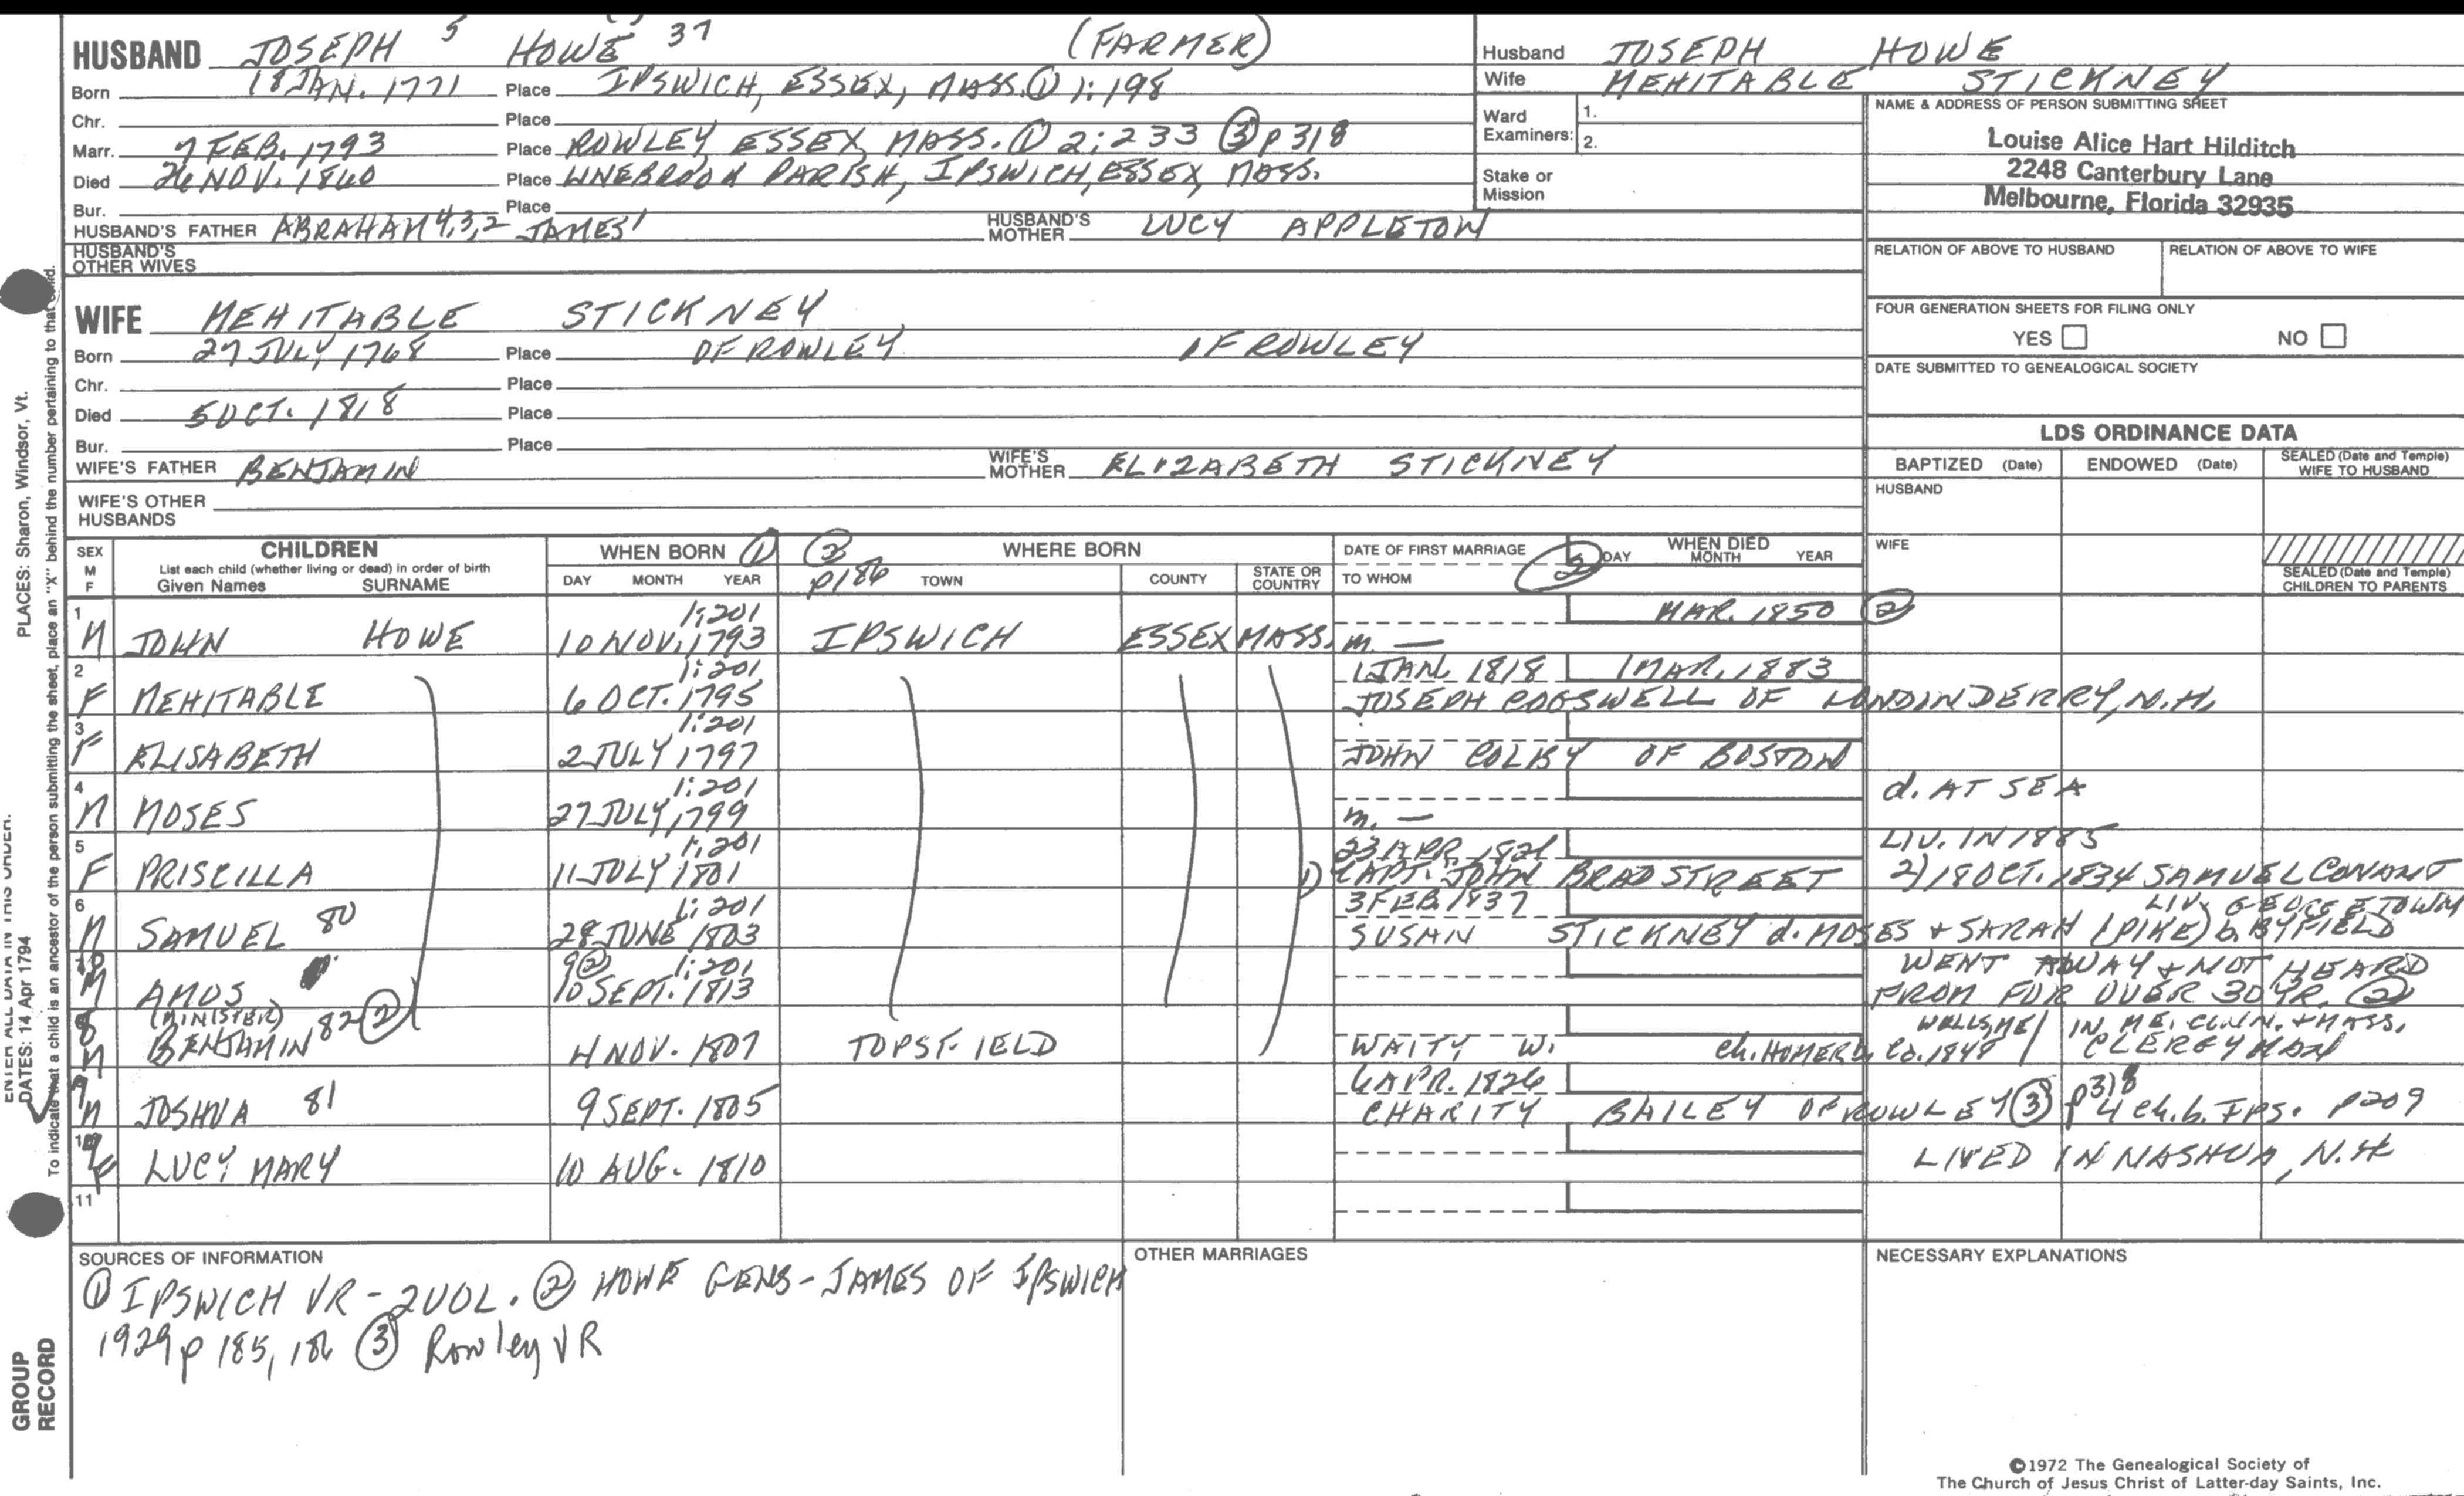 HUSBAND JOSEPH 5 HOWE 37 (FARMER)
Born 18 JAN. 1771 Place IPSWICH, ESSEX, MASS. ① 1:198
Chr. Place
Marr. 7 FEB. 1793 Place ROWLEY ESSEX MASS. ① 2:233 ③ p 318
Died 26 NOV. 1860 Place LINEBROOK PARISH, IPSWICH, ESSEX, MASS.
Bur. Place
HUSBAND'S FATHER ABRAHAM 4,3,2 JAMES 1 HUSBAND'S MOTHER LUCY APPLETON
HUSBAND'S OTHER WIVES
Husband JOSEPH HOWE
Wife MEHITABLE STICKNEY
Ward Examiners: 1.
2.
Stake or Mission
NAME & ADDRESS OF PERSON SUBMITTING SHEET
Louise Alice Hart Hilditch
2248 Canterbury Lane
Melbourne, Florida 32935
RELATION OF ABOVE TO HUSBAND RELATION OF ABOVE TO WIFE
FOUR GENERATION SHEETS FOR FILING ONLY
YES NO
DATE SUBMITTED TO GENEALOGICAL SOCIETY
WIFE MEHITABLE STICKNEY
Born 27 JULY 1768 Place OF ROWLEY OF ROWLEY
Chr. Place
Died 5 OCT. 1818 Place
Bur. Place
WIFE'S FATHER BENJAMIN WIFE'S MOTHER ELIZABETH STICKNEY
WIFE'S OTHER HUSBANDS
LDS ORDINANCE DATA
BAPTIZED (Date) ENDOWED (Date) SEALED (Date and Temple) WIFE TO HUSBAND
HUSBAND
WIFE
SEALED (Date and Temple) CHILDREN TO PARENTS
SEX M F CHILDREN WHEN BORN ① ② p186 WHERE BORN DATE OF FIRST MARRIAGE WHEN DIED
List each child (whether living or dead) in order of birth
Given Names SURNAME DAY MONTH YEAR TOWN COUNTY STATE OR COUNTRY TO WHOM DAY MONTH YEAR
1 1:201 MAR. 1850 ②
M JOHN HOWE 10 NOV. 1793 IPSWICH ESSEX MASS. m. —
2 1:201 1 JAN. 1818 1 MAR. 1883
F MEHITABLE 6 OCT. 1795 JOSEPH COGSWELL OF LONDINDERRY, N.H.
3 1:201
F ELISABETH 2 JULY 1797 JOHN COLBY OF BOSTON
4 1:201 d. AT SEA
M MOSES 27 JULY 1799 m. —
5 1:201 23 APR. 1821 LIV. IN 1885
F PRISCILLA 11 JULY 1801 1) CAPT. JOHN BRADSTREET 2) 18 OCT. 1834 SAMUEL CONANT
6 1:201 3 FEB. 1837 LIV. GEORGETOWN
M SAMUEL 80 28 JUNE 1803 SUSAN STICKNEY d. MOSES + SARAH (PIKE) b. BYFIELD
9② 1:201 WENT AWAY + NOT HEARD
M AMOS 10 SEPT. 1813 FROM FOR OVER 30 YR. ②
8 (MINISTER) WELLS, ME / IN ME, CONN. + MASS,
M BENJAMIN 82 ② 4 NOV. 1807 TOPSFIELD WAITY W. Ch. HOMER b. Co. 1848 CLERGYMAN
9 6 APR. 1826
M JOSHUA 81 9 SEPT. 1805 CHARITY BAILEY OF ROWLEY ③ p318 4 ch. b. IPS. p209
10
LUCY MARY 10 AUG. 1810 LIVED IN NASHUA, N.H.
11
SOURCES OF INFORMATION
① IPSWICH VR - 2 VOL. ② HOWE GENS - JAMES OF IPSWICH
1929 p 185, 186 ③ Rowley VR
OTHER MARRIAGES
NECESSARY EXPLANATIONS
©1972 The Genealogical Society of
The Church of Jesus Christ of Latter-day Saints, Inc.
PLACES: Sharon, Windsor, Vt.
ENTER ALL DATA IN THIS ORDER:
DATES: 14 Apr 1794
To indicate that a child is an ancestor of the person submitting the sheet, place an "X" behind the number pertaining to that child.
GROUP
RECORD